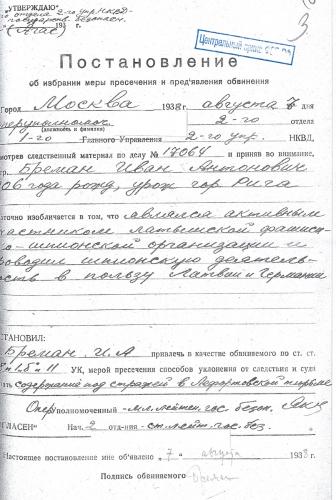 "УТВЕРЖДАЮ"
отдела 2-го упр. НКВД
государств. безопасн.
193 г.
Центральный архив
3
Постановление
об избрании меры пресечения и предъявления обвинения
Город Москва 1938 г. августа 7 дня
2-го отдела
(должность и фамилия)
1-го Главного Управления 2-го упр. НКВД,
отрев следственный материал по делу № 17064 и приняв во внимание,
гр. Бреман Иван Антонович
06 года рожд, урож гор Рига
аточно изобличается в том, что являлся активным
частником латышской фашист
о-шпионской организации и
роводил шпионскую деятель-
ость в пользу Латвии и Германии
СТАНОВИЛ:
Бреман И.А привлечь в качестве обвиняемого по ст. ст.
УК, мерой пресечения способов уклонения от следствия и суда
ать содержание под стражей в Лефортовской тюрьме
Оперуполномоченный - мл. лейтен. гос. безоп.
ГЛАСЕН" Нач. 2 отд-ния - ст. лейт. гос. без.
Настоящее постановление мне об'явлено " 7 " августа 1938
Подпись обвиняемого